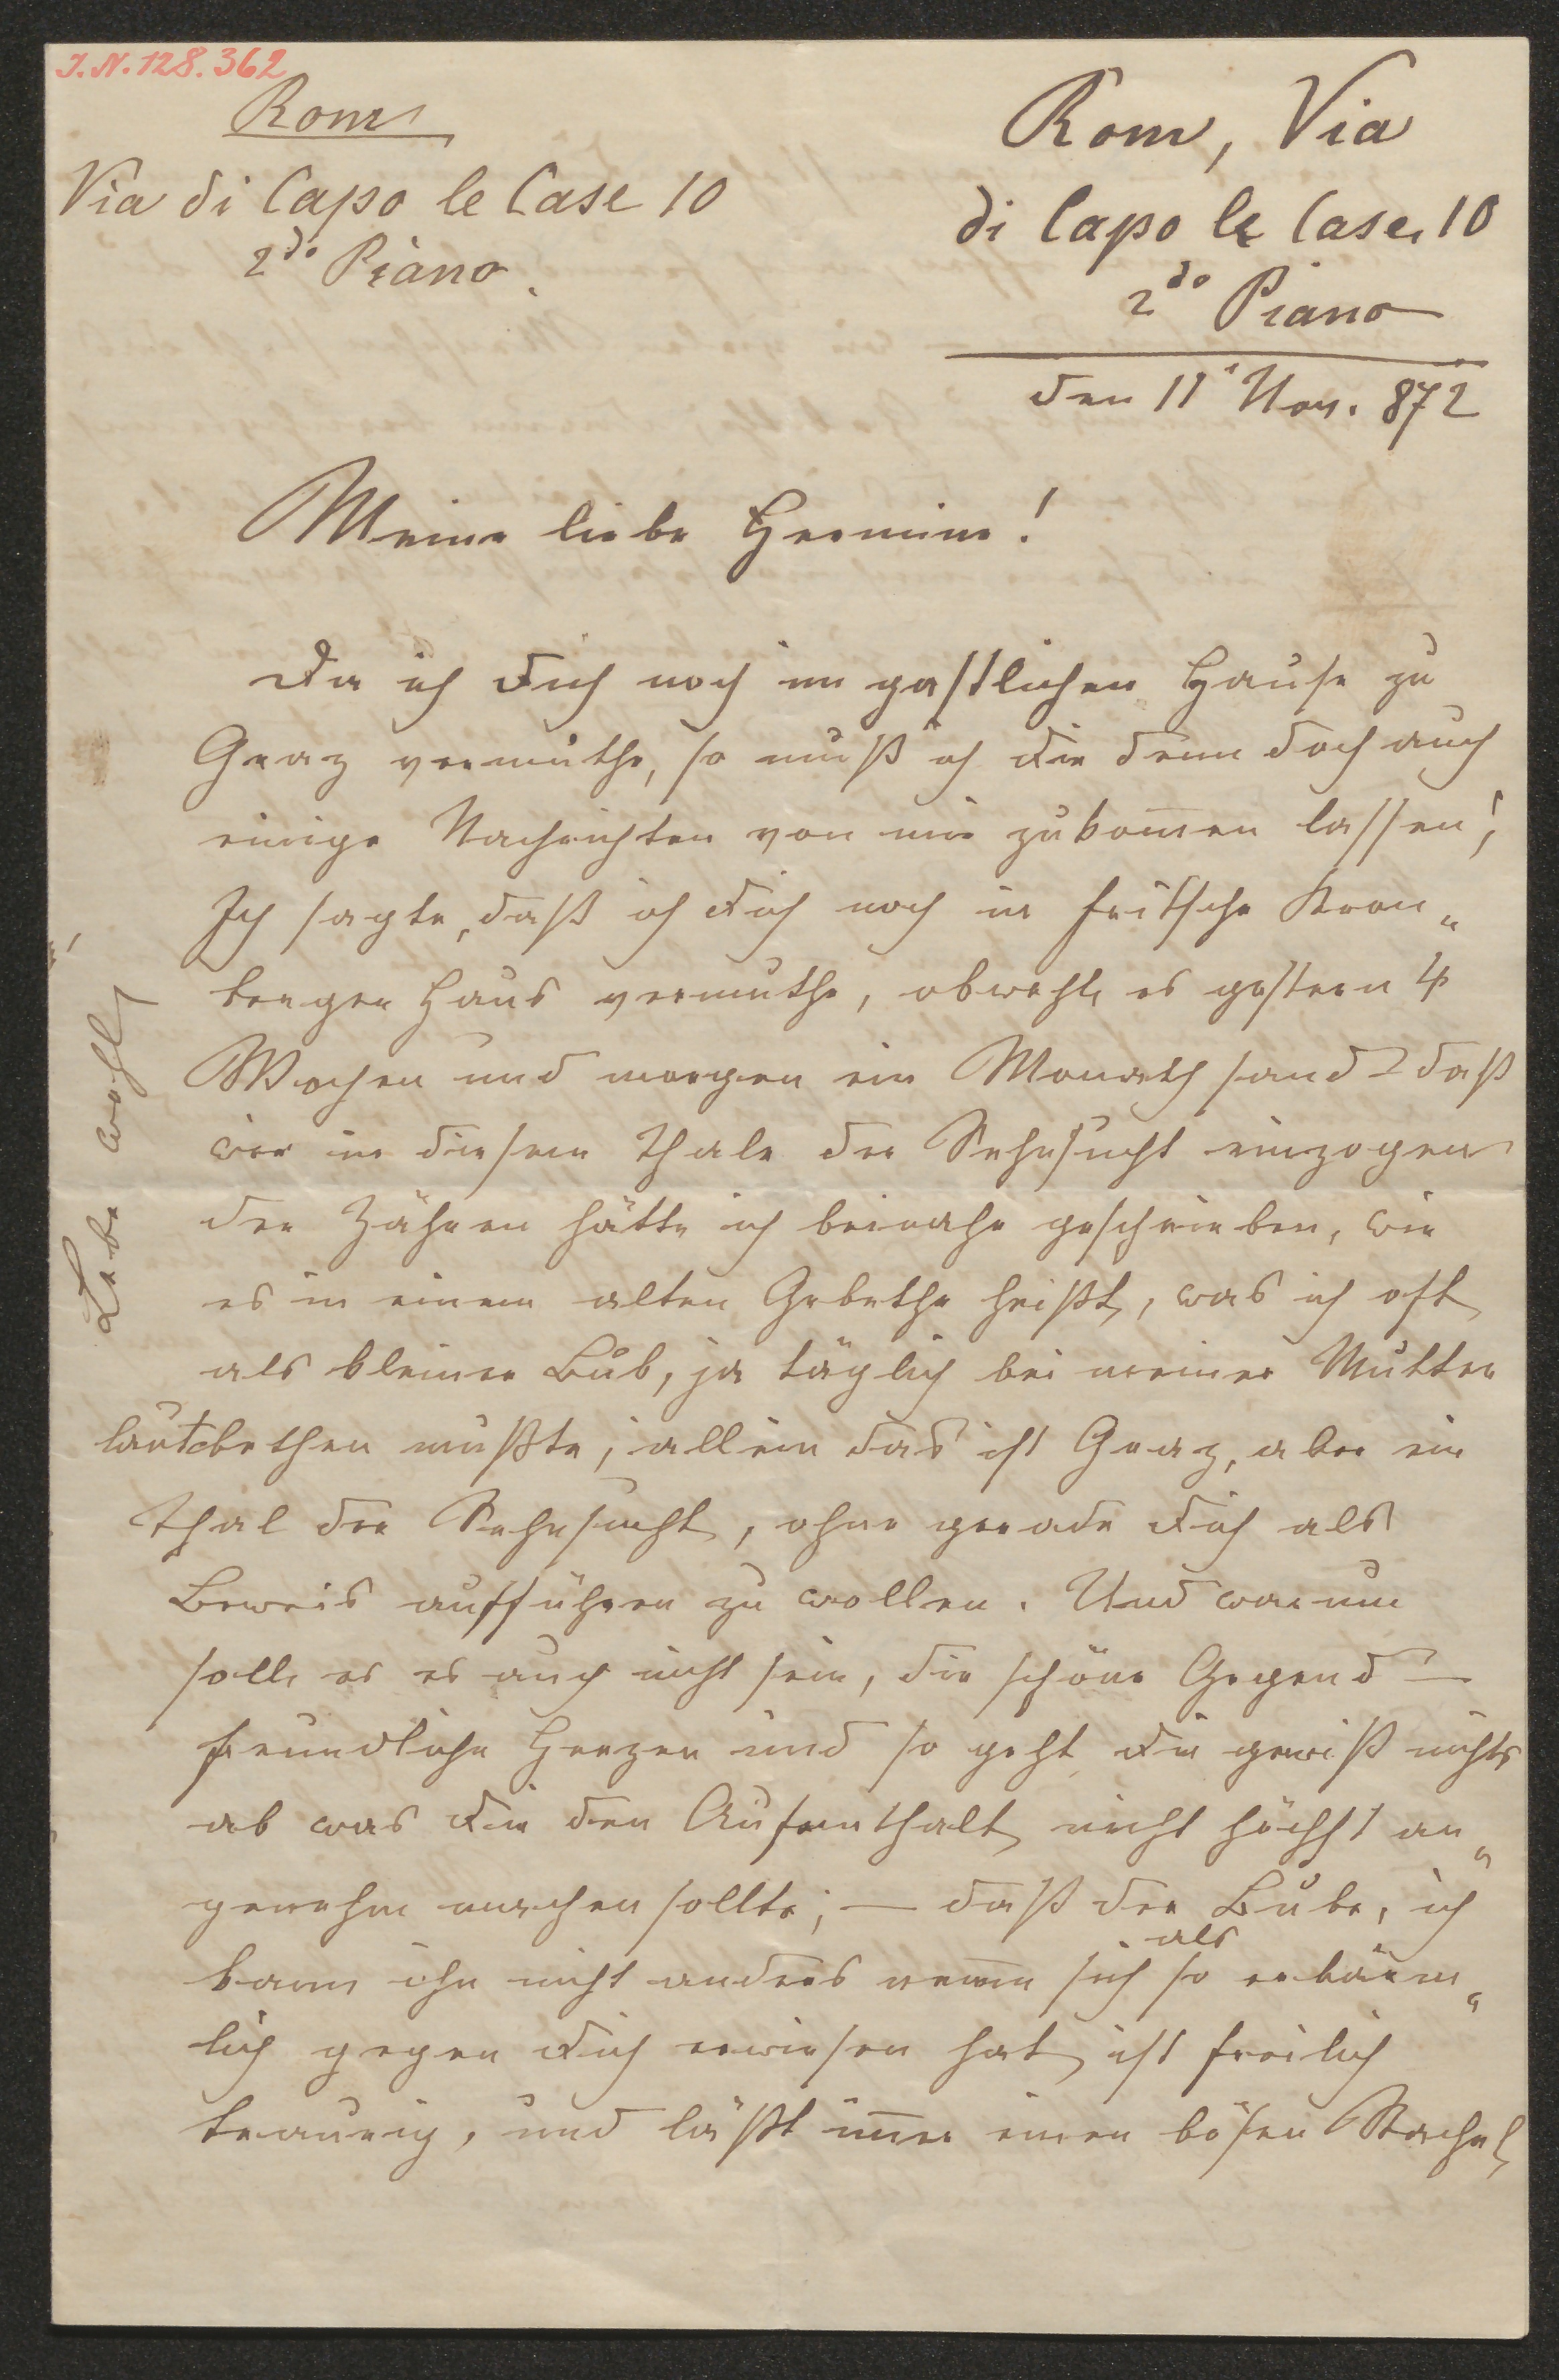 I.N. 128.362
Rom
Via di Capo le Case 10
2do Piano.
Rom, Via
di Capo le Case, 10
2do Piano
den 11t Nov. 872
Meine liebe Hermine!
Da ich Dich noch im gastlichen Hause zu
Graz vermuthe, so muß ich Dir denn doch auch
einige Nachrichten von mir zukom̅en lassen;
Ich sagte, daß ich Dich noch in Fritsche Kron„
berger Haus vermuthe, obwohl es gestern 4
Wochen und morgen ein Monath sand – daß
wir in diesem Thale der Sehnsucht einzogen
der Zähren hätte ich beinahe geschrieben, wie
es in einem alten Gebethe heißt, was ich oft
als kleiner Bub, ja täglich bei meiner Mutter
lautbethen mußte; allein das ist Graz, aber ein
Thal der Sehnsucht, ohne gerade Dich als
Beweis aufführen zu wollen. Und warum
soll es es auch nicht sein, die schöne Gegend –
freundliche Herzen und so geht Dir gewiß nichts
ab was Dir den Aufenthalt nicht höchst an„
genehm machen sollte; – daß der Bube, ich
kann ihn nicht anders nen̅en sich als so erbärm„
lich gegen Dich erwiesen hat, ist freilich
traurig, und läßt im̅er einen bösen Stachel
Lebe wohl